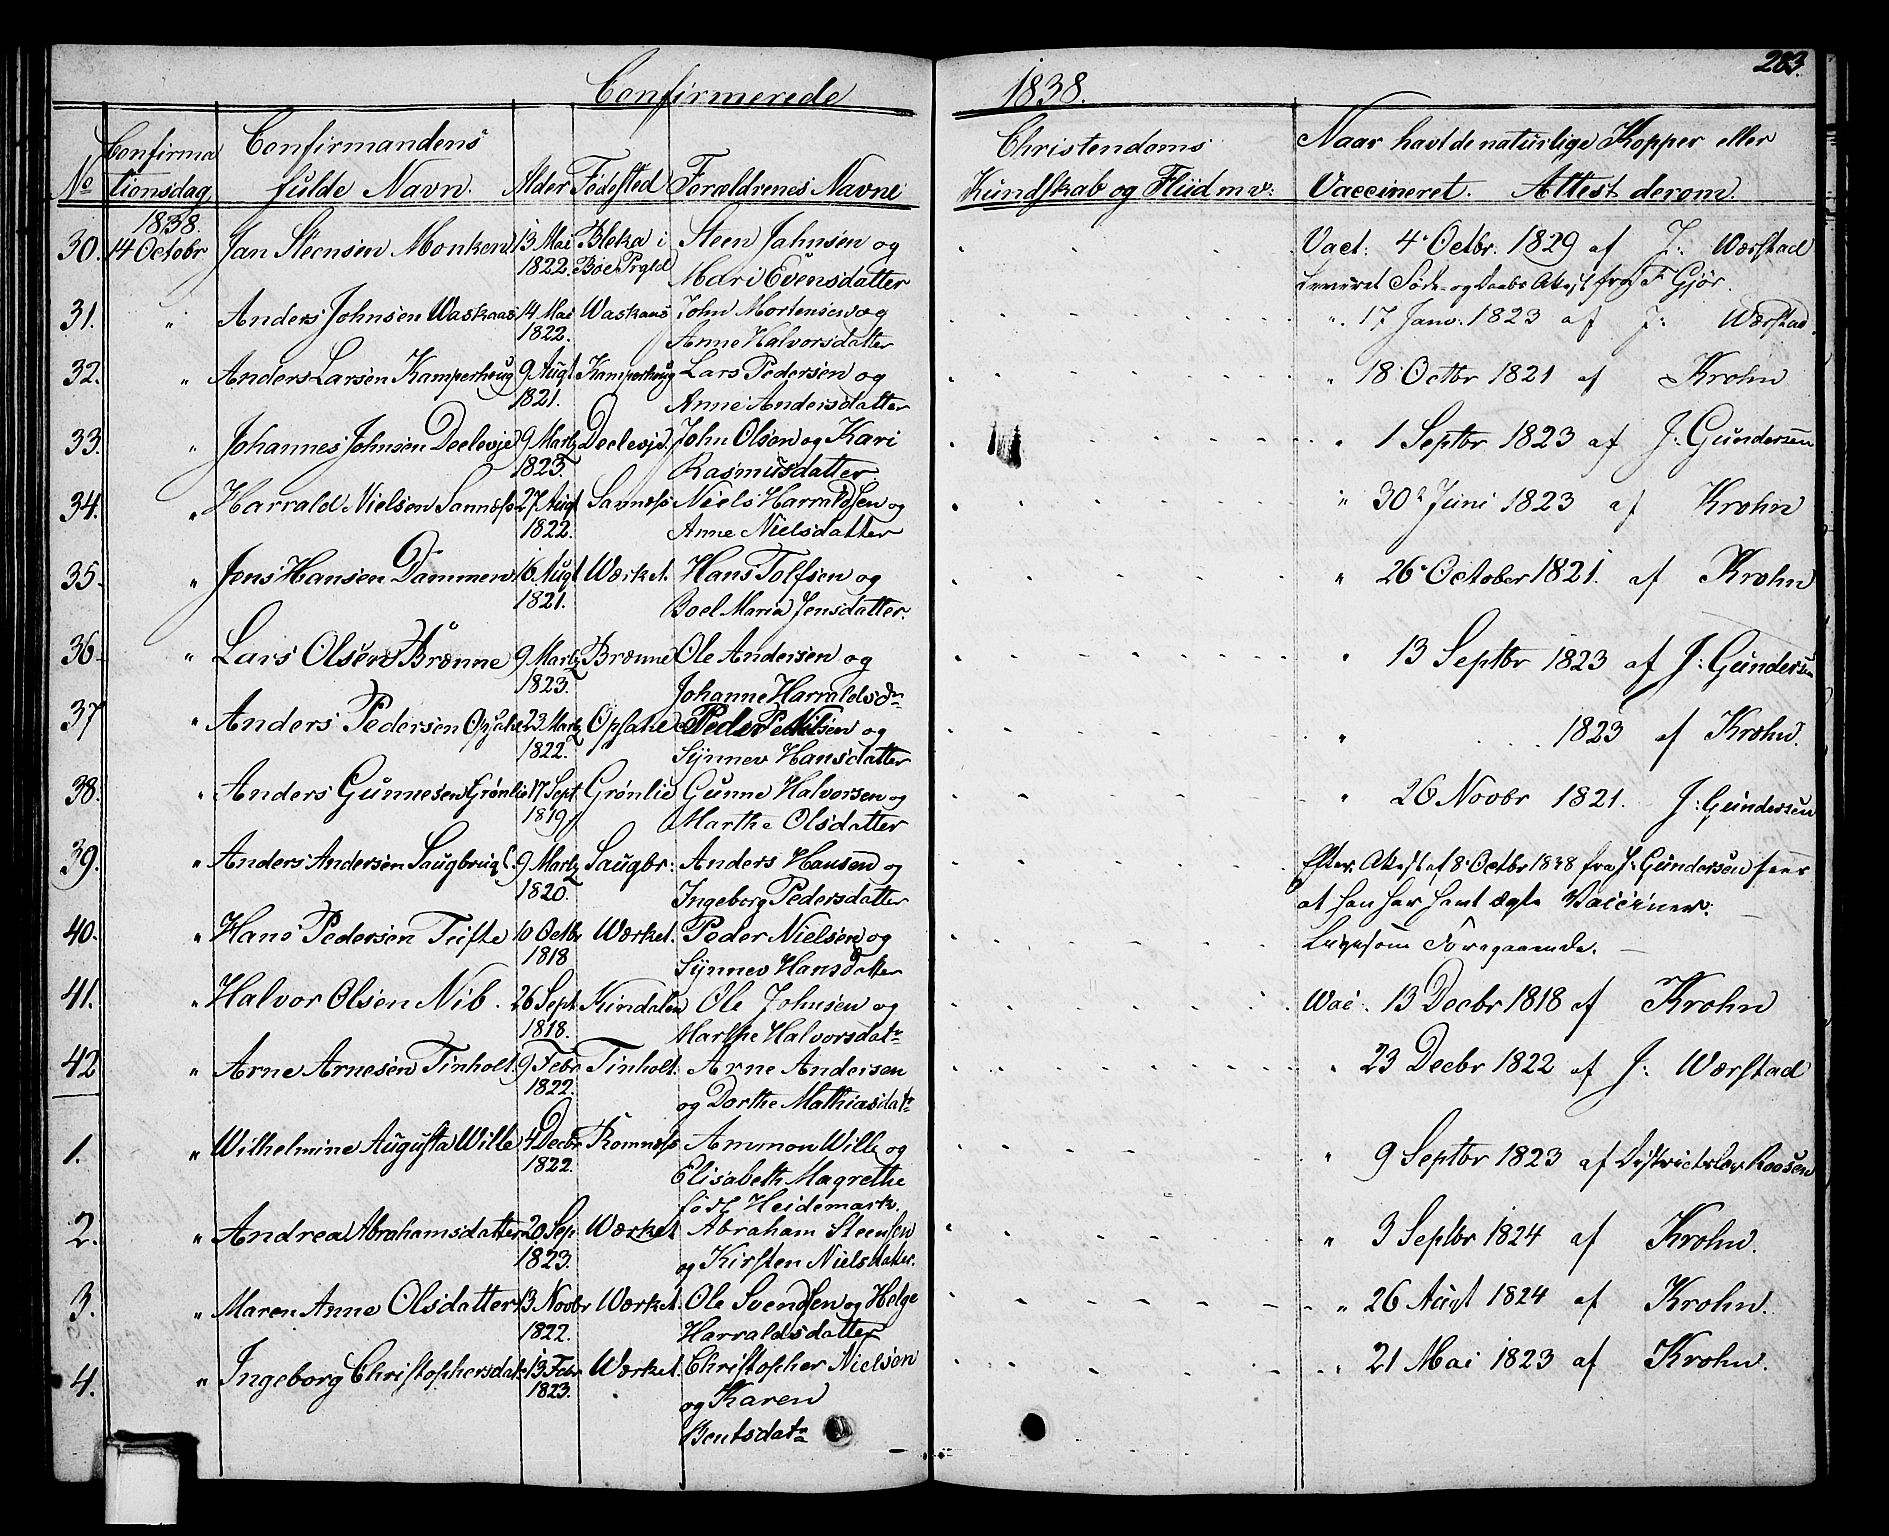 283.
Confirmerede 1838.
No Confirmationsdag Confirmandens fulde Navn. Alder Fødested Forældrenes Navne Christendoms Kundskab og Fliid m v: Naar havt de naturlige Kopper eller Vaccineret. Attest derom.
1838.
30. 14 Octobr Jan Steensen Monken 13 Mai 1822. Bleka i Boe Prgld Steen Jahnsen og Mari Evensdatter Vact. 4 Octbr. 1829 af J: Wærstad
Leveret Føde- og Daabs Attest fra F Gjør.
31. " Anders Johnsen Waskaas 14 Mai 1822. Waskaas John Mortensen og Anne Halvorsdatter ". 17 Janv. 1823 af J: Wærstad
32. " Anders Larsen Kamperhoug 9 Augt 1821. Kamperhoug Lars Pedersen og Anne Andersdatter " 18 Octbr 1821 af Krohn
33. " Johannes Johnsen Deelevje 9 Martz 1823. Deelevje. John Olsen og Kari Rasmusdatter " 1 Septbr 1823 af J: Gundersen
34. " Harrald Nielsen Sannæss 27 Augt 1822. Sannæss Niels Harraldsen og Anne Nielsdatter " 30 Juni 1823 af Krohn
35. " Jens Hansen Dammen 16 Augt 1821. Wærket. Hans Tolfsen og Boel Maria Jensdatter. " 26 October 1821. af Krohn
36. " Lars Olsen Brønne 9 Martz 1823. Brønne Ole Andersen og Johanne Harraldsdr " 13 Septbr 1823 af J: Gundersen
37 " Anders Pedersen Opsahl 23 Martz 1822. Opsahl Peder og Synnev Hansdatter " . . . . 1823 af Krohn.
38. " Anders Gunnesen Grønlie 17 Sept 1819 Grønlie Gunne Halvorsen og Marthe Olsdatter " 26 Novbr 1821. J: Gundersen
39. " Anders Andersen Saugbrug 9 Martz 1820. Saugbr: Anders Hansen og Ingeborg Pedersdatter Efter Attest af 8 Octbr 1838 fra J: Gundersen
at han har havt ægte Vacciner.
40. " Hans Pedersen Tufte 10 Octbr 1818 Wærket. Peder Nielsen og Synnev Hansdatter Ligesom Foregaaende.
41. " Halvor Olsen Nib. 26 Sept 1818. Kindalen Ole Johnsen og Marthe Halvorsdatr Vac. 13 Decbr 1818 af Krohn
42 " Arne Arnesen Tinholt 9 Febr 1822. Tinholt. Arne Andersen og Dorthe Mathiasdatr " 23 Decbr 1822 af J: Wærstad
1. " Wilhelmine Augusta Wille 4 Decbr 1822. Romnæss Ammon Wille og Elisabeth Magrethe født Heidemark. " 9 Septbr 1823 af Districtslæ Roosen
2. " Andrea Abrahamsdatter 20 Sep 1823. Wærket Abraham Steensen og Kirsten Nielsdatter. " 3 Septbr 1824 af Krohn.
3. " Maren Anne Olsdatter 13 Novbr 1822. Wærket. Ole Svendsen og Helge Harraldsdatter " 26 Augt 1824 af Krohn.
4. " Ingeborg Christophersdatr 13 Febr 1823. Wærket. Christopher Nielsen og Karen Bentsdatr " 21 Mai 1823 af Krohn.